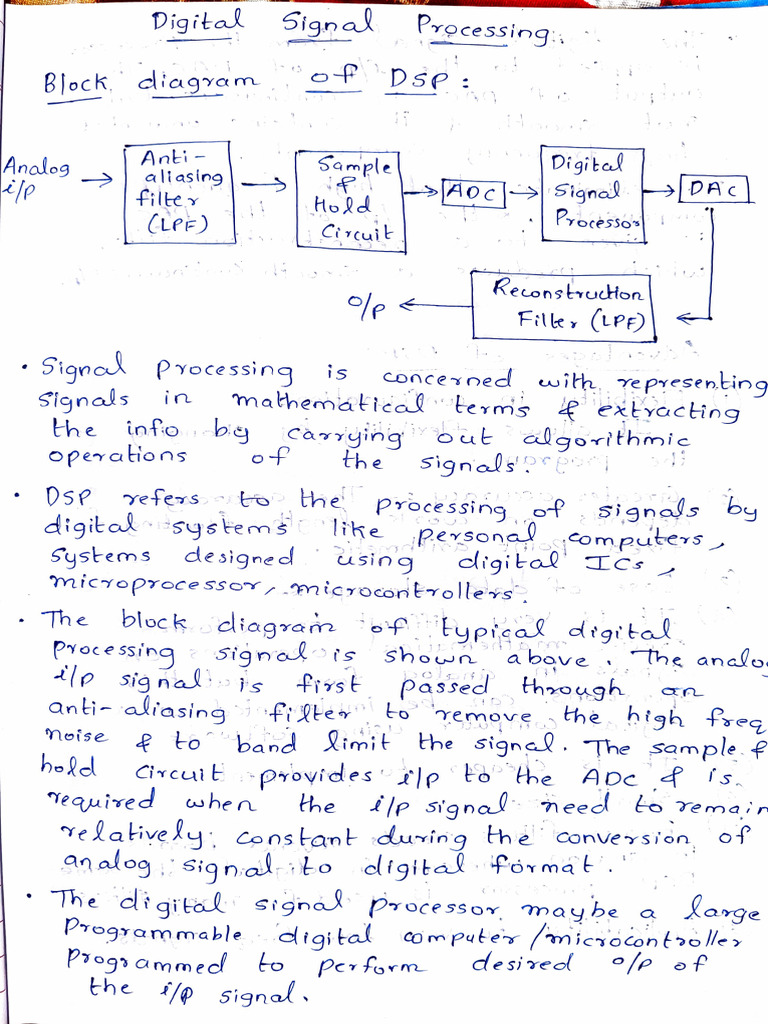 Digital Signal Processing
Block diagram of DSP :
Analog
i/p
Anti-
aliasing
filter
(LPF)
Sample
&
Hold
Circuit
ADC
Digital
Signal
Processor
DAC
Reconstruction
Filter (LPF)
o/p
• Signal processing is concerned with representing
signals in mathematical terms & extracting
the info by carrying out algorithmic
operations of the signals.
• DSP refers to the processing of signals by
digital systems like personal computers,
systems designed using digital ICs,
microprocessor, microcontrollers.
• The block diagram of typical digital
processing signal is shown above. The analog
i/p signal is first passed through an
anti-aliasing filter to remove the high freq
noise & to band limit the signal. The sample &
hold circuit provides i/p to the ADC & is
required when the i/p signal need to remain
relatively constant during the conversion of
analog signal to digital format.
• The digital signal processor maybe a large
programmable digital computer/microcontroller
programmed to perform desired o/p of
the i/p signal.